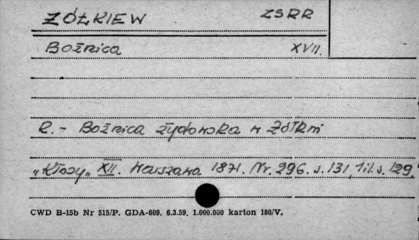 ŻÓŁKIEW ZSRR
Bożnica XVII.
R. - Bożnica żydowska w Żółkwi
"Kłosy" XII. Warszawa 1871. Nr. 296. s. 131, il. s. 129.
CWD B-15b Nr 515/P. GDA-609. 6.3.59. 1.000.000 karton 180/V.